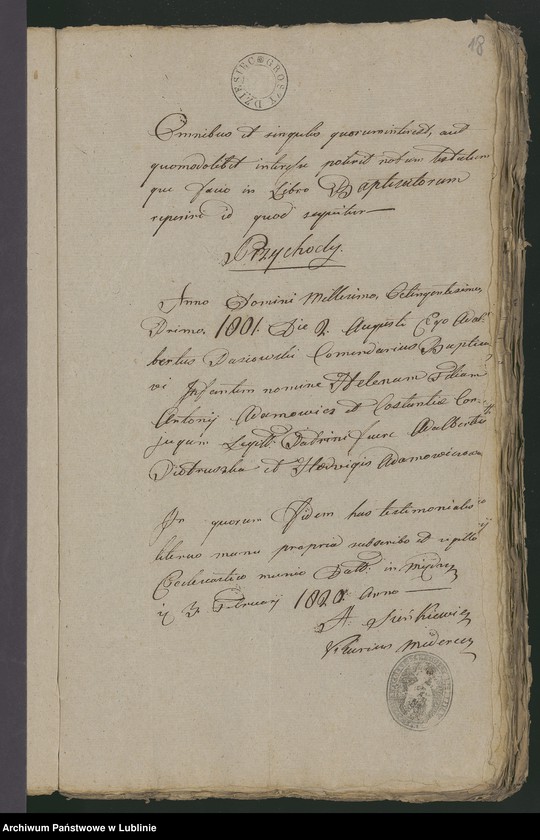 18
DZIESIĘĆ GROSZY
Omnibus et singulis quorum interest, aut
quomodolibet interesse poterit notum testatum
que facio in Libro Baptisatorum
reperiri id quod sequitur
Przychody.
Anno Domini Millesimo, Octingentesimo,
Primo, 1801. Die 2. Augusti Ego Adal
bertus Commendarius Baptisa
vi Infantem nomine Helenam Filiam
Antonij Adamowicz et Costantiæ Con
jugum Legitt: Patrini fuere Adalbertus
Piotruszka et Hedvigis Adamowiczowa
In quorum Fidem has testimoniales
literas manu propria subscribo et sigillo
Ecclesiastico munio Datt: in
3. Februarij 1820. Anno
A. Sieńkiewicz
Vicarius
Archiwum Państwowe w Lublinie